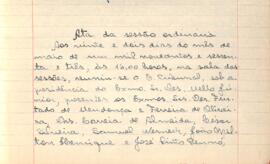 Ata da sessão ordinaria
Aos vinte e dois dias do mês de
maio de um mil novecentos e sessen-
ta e três, às 14,00 horas, na sala das
sessões, reuniu-se o E. Tribunal, sob a
presidência do Exmo. Sr. Des. Mello
Júnior, presentes os Exmos. Srs. Des. Fur-
tado de Mendonça e Ferreira de Olivei-
ra, Drs. Corrêa de Almeida, César
Silveira, Samuel Werneck, João Mil-
ton Henrique e José